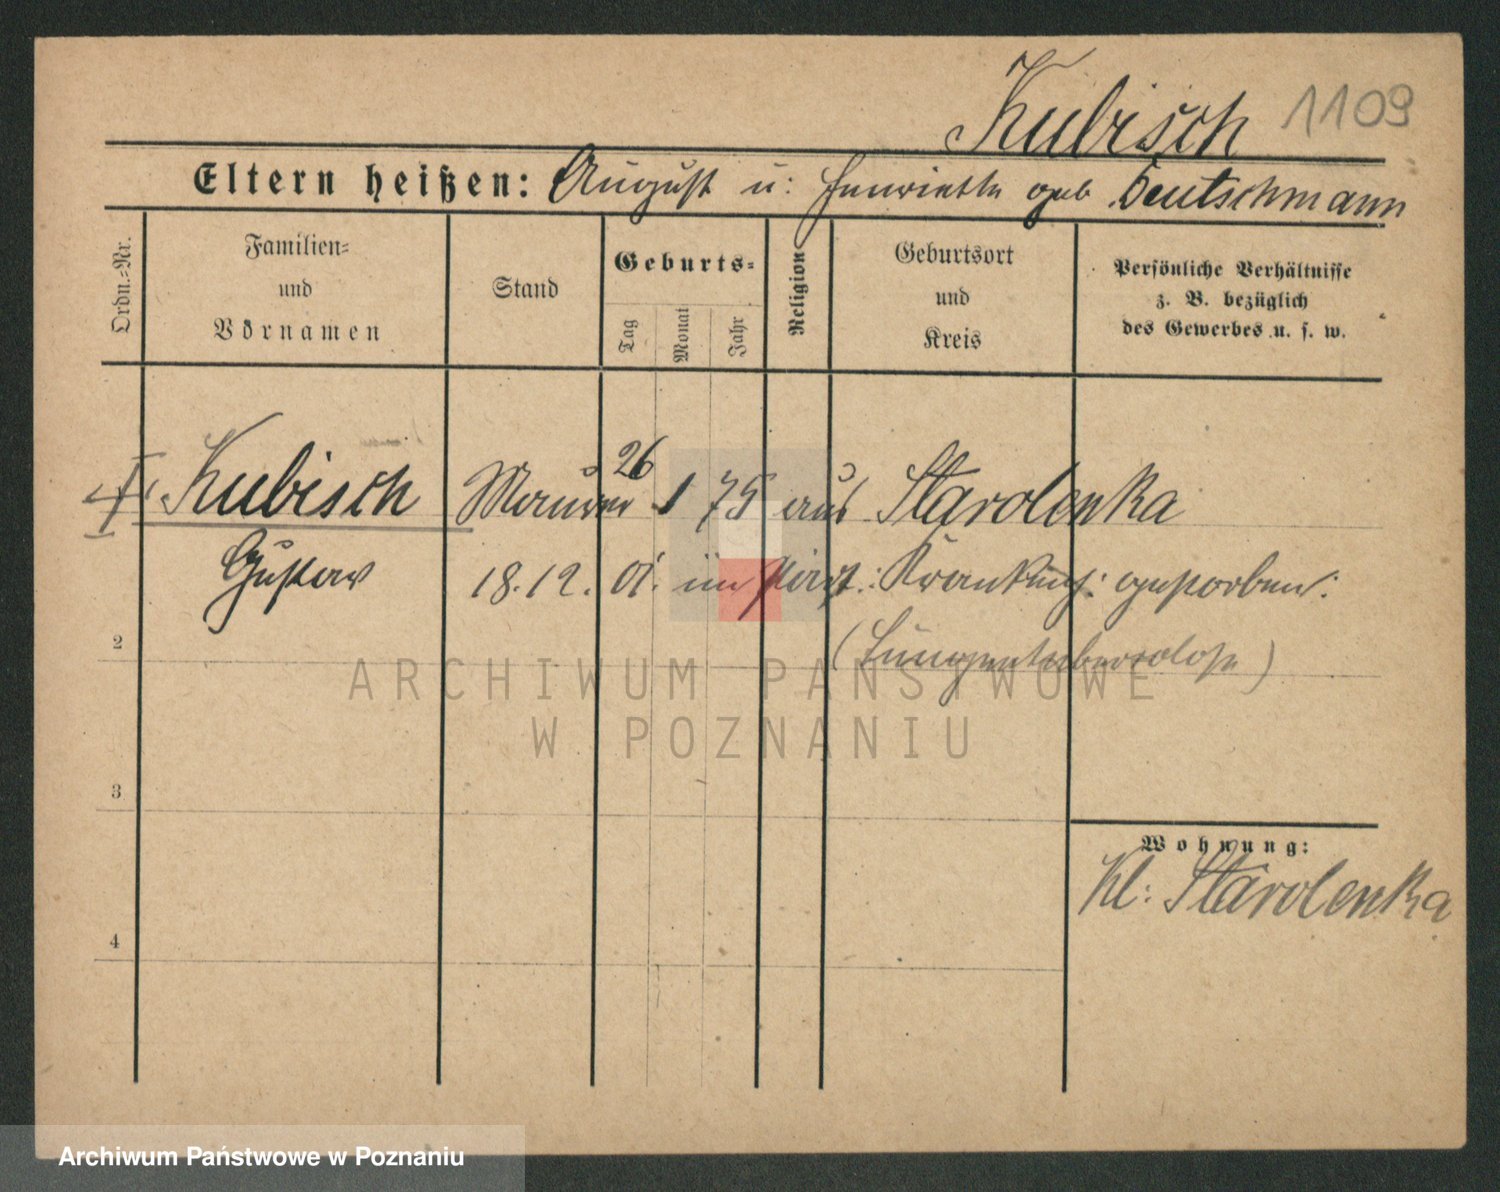 Kubisch 1109
Eltern heißen: August u: Henriette geb Deutschmann
Ordn.=Nr.
Familien=
und
Vornamen
Stand
Geburts=
Tag
Monat
Jahr
Religion
Geburtsort
und
Kreis
Persönliche Verhältnisse
z. B. bezüglich
des Gewerbes u. s. w.
Kubisch Maurer 26 1 75 aus Starolenka
Gustav 18.12. 01. im städt: Krankhs: gestorben:
2
(Lungentuberkolose)
ARCHIWUM PAŃSTWOWE
W POZNANIU
3
Wohnung:
Kl: Starolenka
4
Archiwum Państwowe w Poznaniu